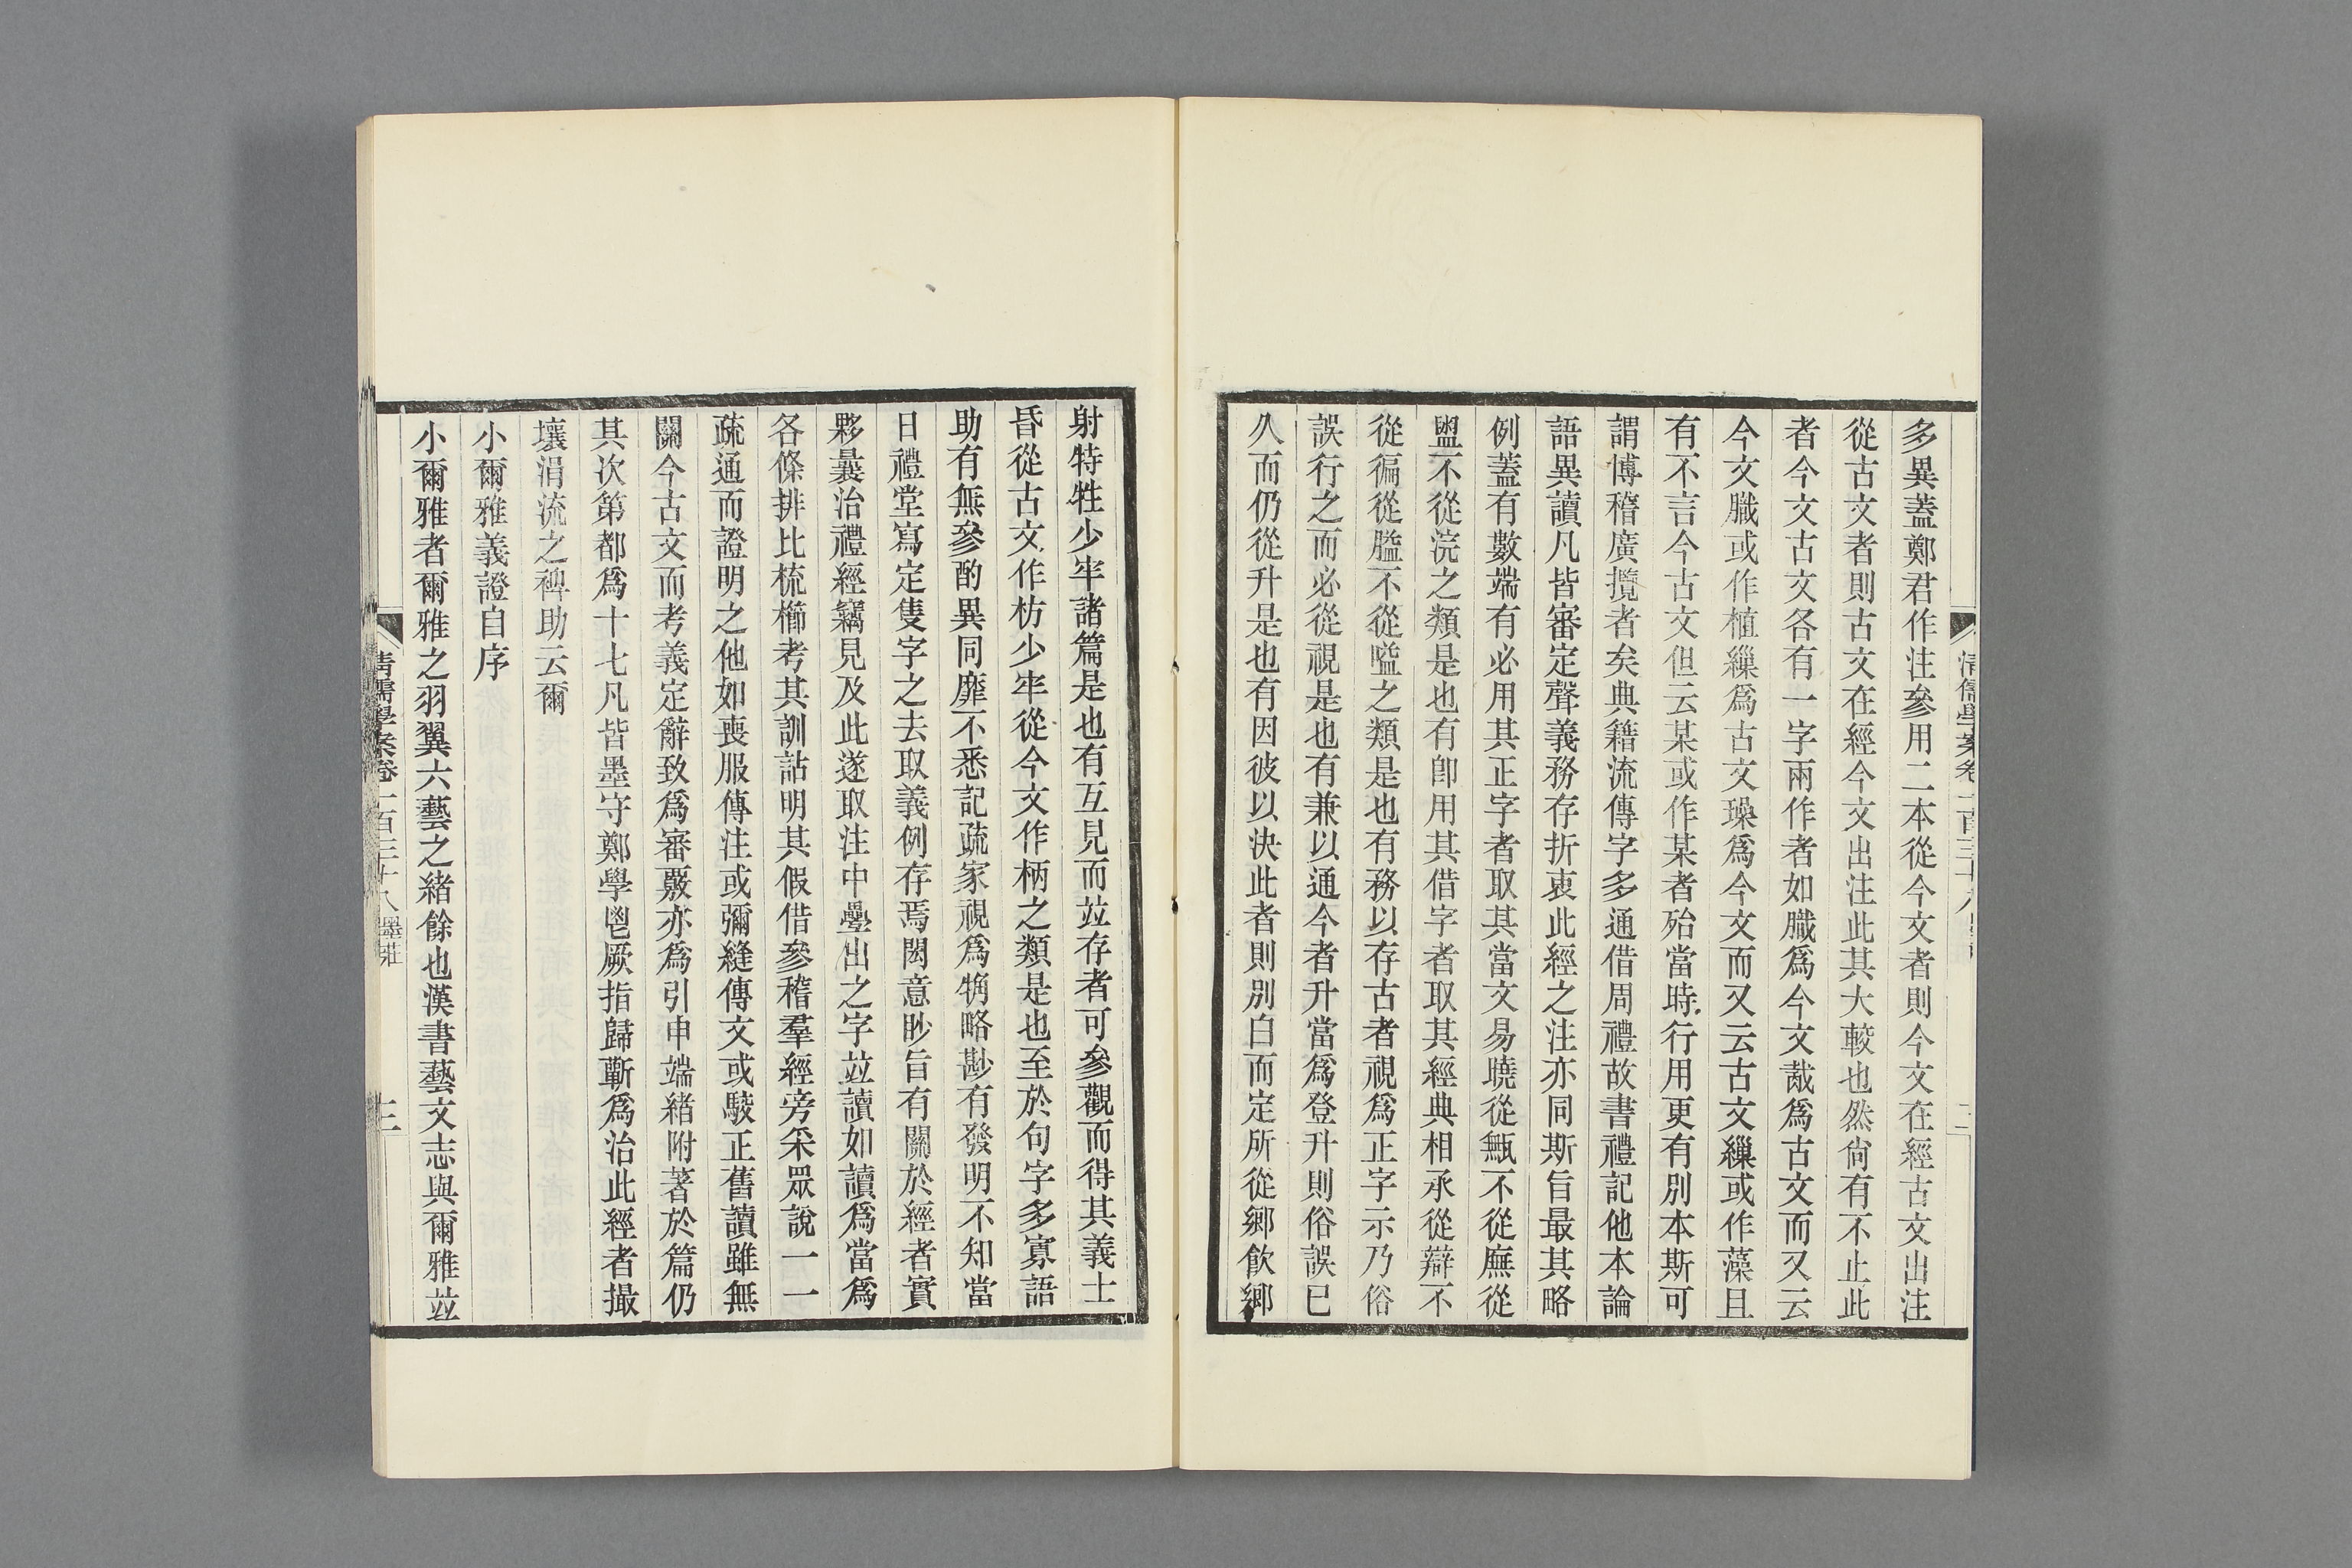 多異蓋鄭君作注參用二本從今文者則今文在經古文出注
從古文者則古文在經今文出注此其大較也然尙有不止此
者今文古文各有一字兩作者如膱爲今文胾爲古文而又云
今文膱或作植繅爲古文璪爲今文而又云古文繅或作藻且
有不言今古文但云某或作某者殆當時行用更有別本斯可
謂博稽廣攬者矣典籍流傳字多通借周禮故書禮記他本論
語異讀凡皆審定聲義務存折衷此經之注亦同斯旨最其略
例蓋有數端有必用其正字者取其當文易曉從甒不從廡從
盥不從浣之類是也有卽用其借字者取其經典相承從辯不
從徧從膉不從嗌之類是也有務以存古者視爲正字示乃俗
誤行之而必從視是也有兼以通今者升當爲登升則俗誤已
久而仍從升是也有因彼以決此者則別白而定所從鄉飮鄉
清儒學案卷一百三十八
二
射特牲少牢諸篇是也有互見而並存者可參觀而得其義士
昏從古文作枋少牢從今文作柄之類是也至於句字多寡語
助有無參酌異同靡不悉記疏家視爲觕略尠有發明不知當
日禮堂寫定隻字之去取義例存焉閎意眇旨有關於經者實
夥曩治禮經竊見及此遂取注中疊出之字竝讀如讀爲當爲
各條排比梳櫛考其訓詁明其假借參稽羣經旁采眾說一一
疏通而證明之他如喪服傳注或彌縫傳文或駁正舊讀雖無
關今古文而考義定辭致爲審覈亦爲引申端緖附著於篇仍
其次第都爲十七凡皆墨守鄭學鬯厥指歸蘄爲治此經者撮
壤涓流之稗助云爾
小爾雅義證自序
小爾雅者爾雅之羽翼六藝之緖餘也漢書藝文志與爾雅竝
清儒學案卷一百三十八 墨莊
三